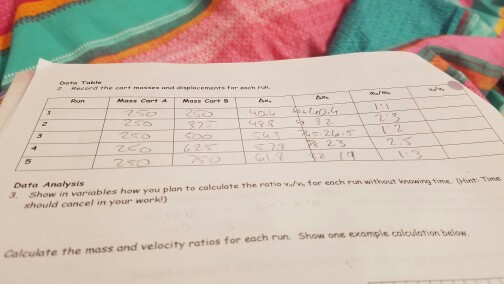 Data Table
2. Record the cart masses and displacements for each run.
Run Mass Cart A Mass Cart B Δxₐ Δxᵦ mₐ/mᵦ
1 250 250 40.4 40.4 1:1
2 250 375 32 2:3
3 250 500 26.5 1:2
4 250 625 23 2:5
5 250 750 61.8 19 1:3
Data Analysis
3. Show in variables how you plan to calculate the ratio vₐ/vᵦ for each run without knowing time. (Hint: Time
should cancel in your work!)
Calculate the mass and velocity ratios for each run. Show one example calculation below.